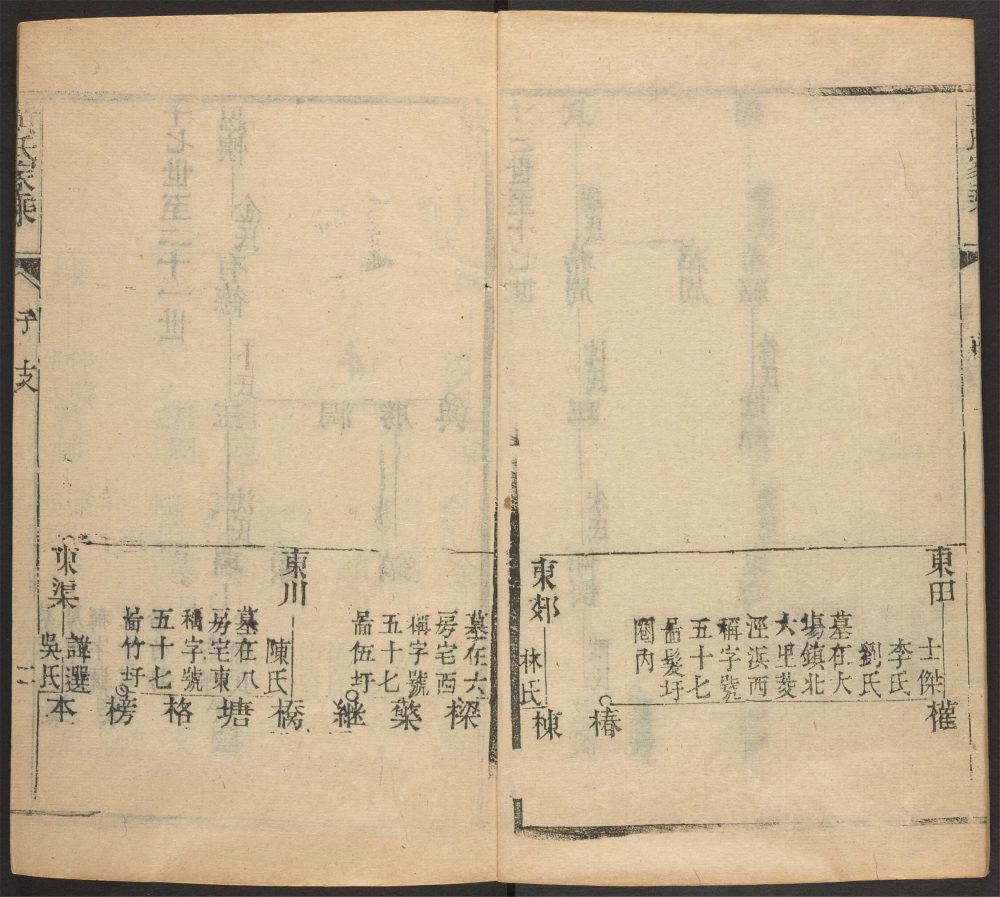 東田
士傑
李氏
劉氏
墓在大
場鎮北
大里菱
涇浜西
稱字號
五十七
啚髮圩
圈內
權
椿
東郊
林氏
棟
墓在六
房宅西
稱字號
五十七
啚伍圩
樑
葉
継
東川
陳氏
墓在八
房宅東
稱字號
五十七
啚竹圩
橋
塘
格
榜
東渠
諱選
吳氏
本
氏家乘
支
二